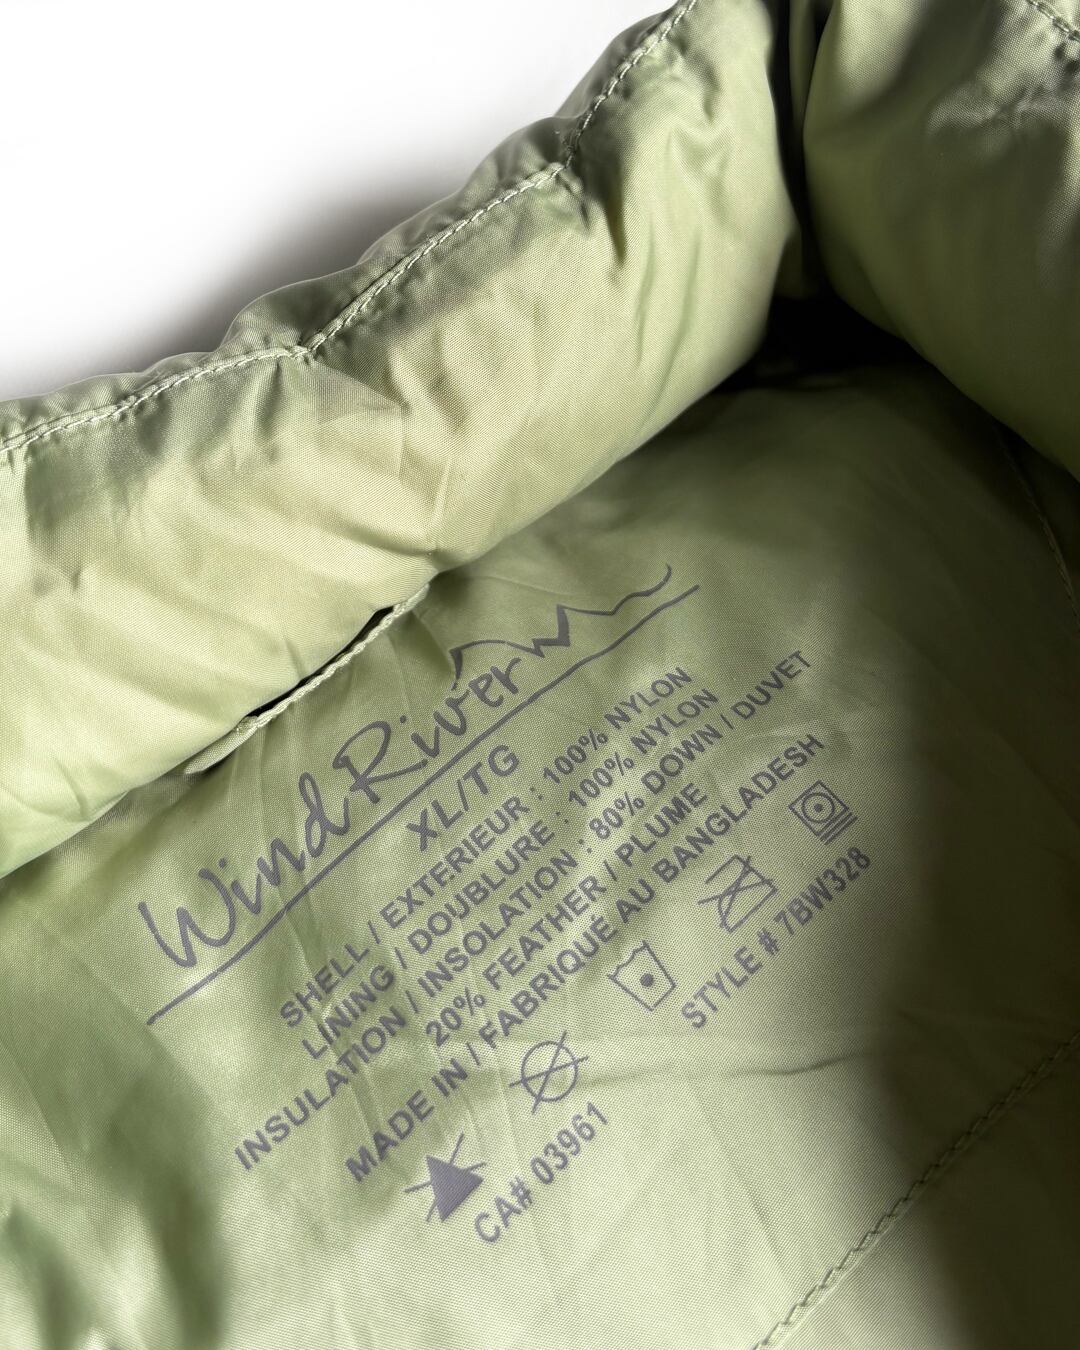 WindRiver
XL/TG
SHELL / EXTERIEUR : 100% NYLON
LINING / DOUBLURE : 100% NYLON
INSULATION / INSOLATION : 80% DOWN / DUVET
20% FEATHER / PLUME
MADE IN / FABRIQUÉ AU BANGLADESH
CA# 03961 STYLE # 7BW328